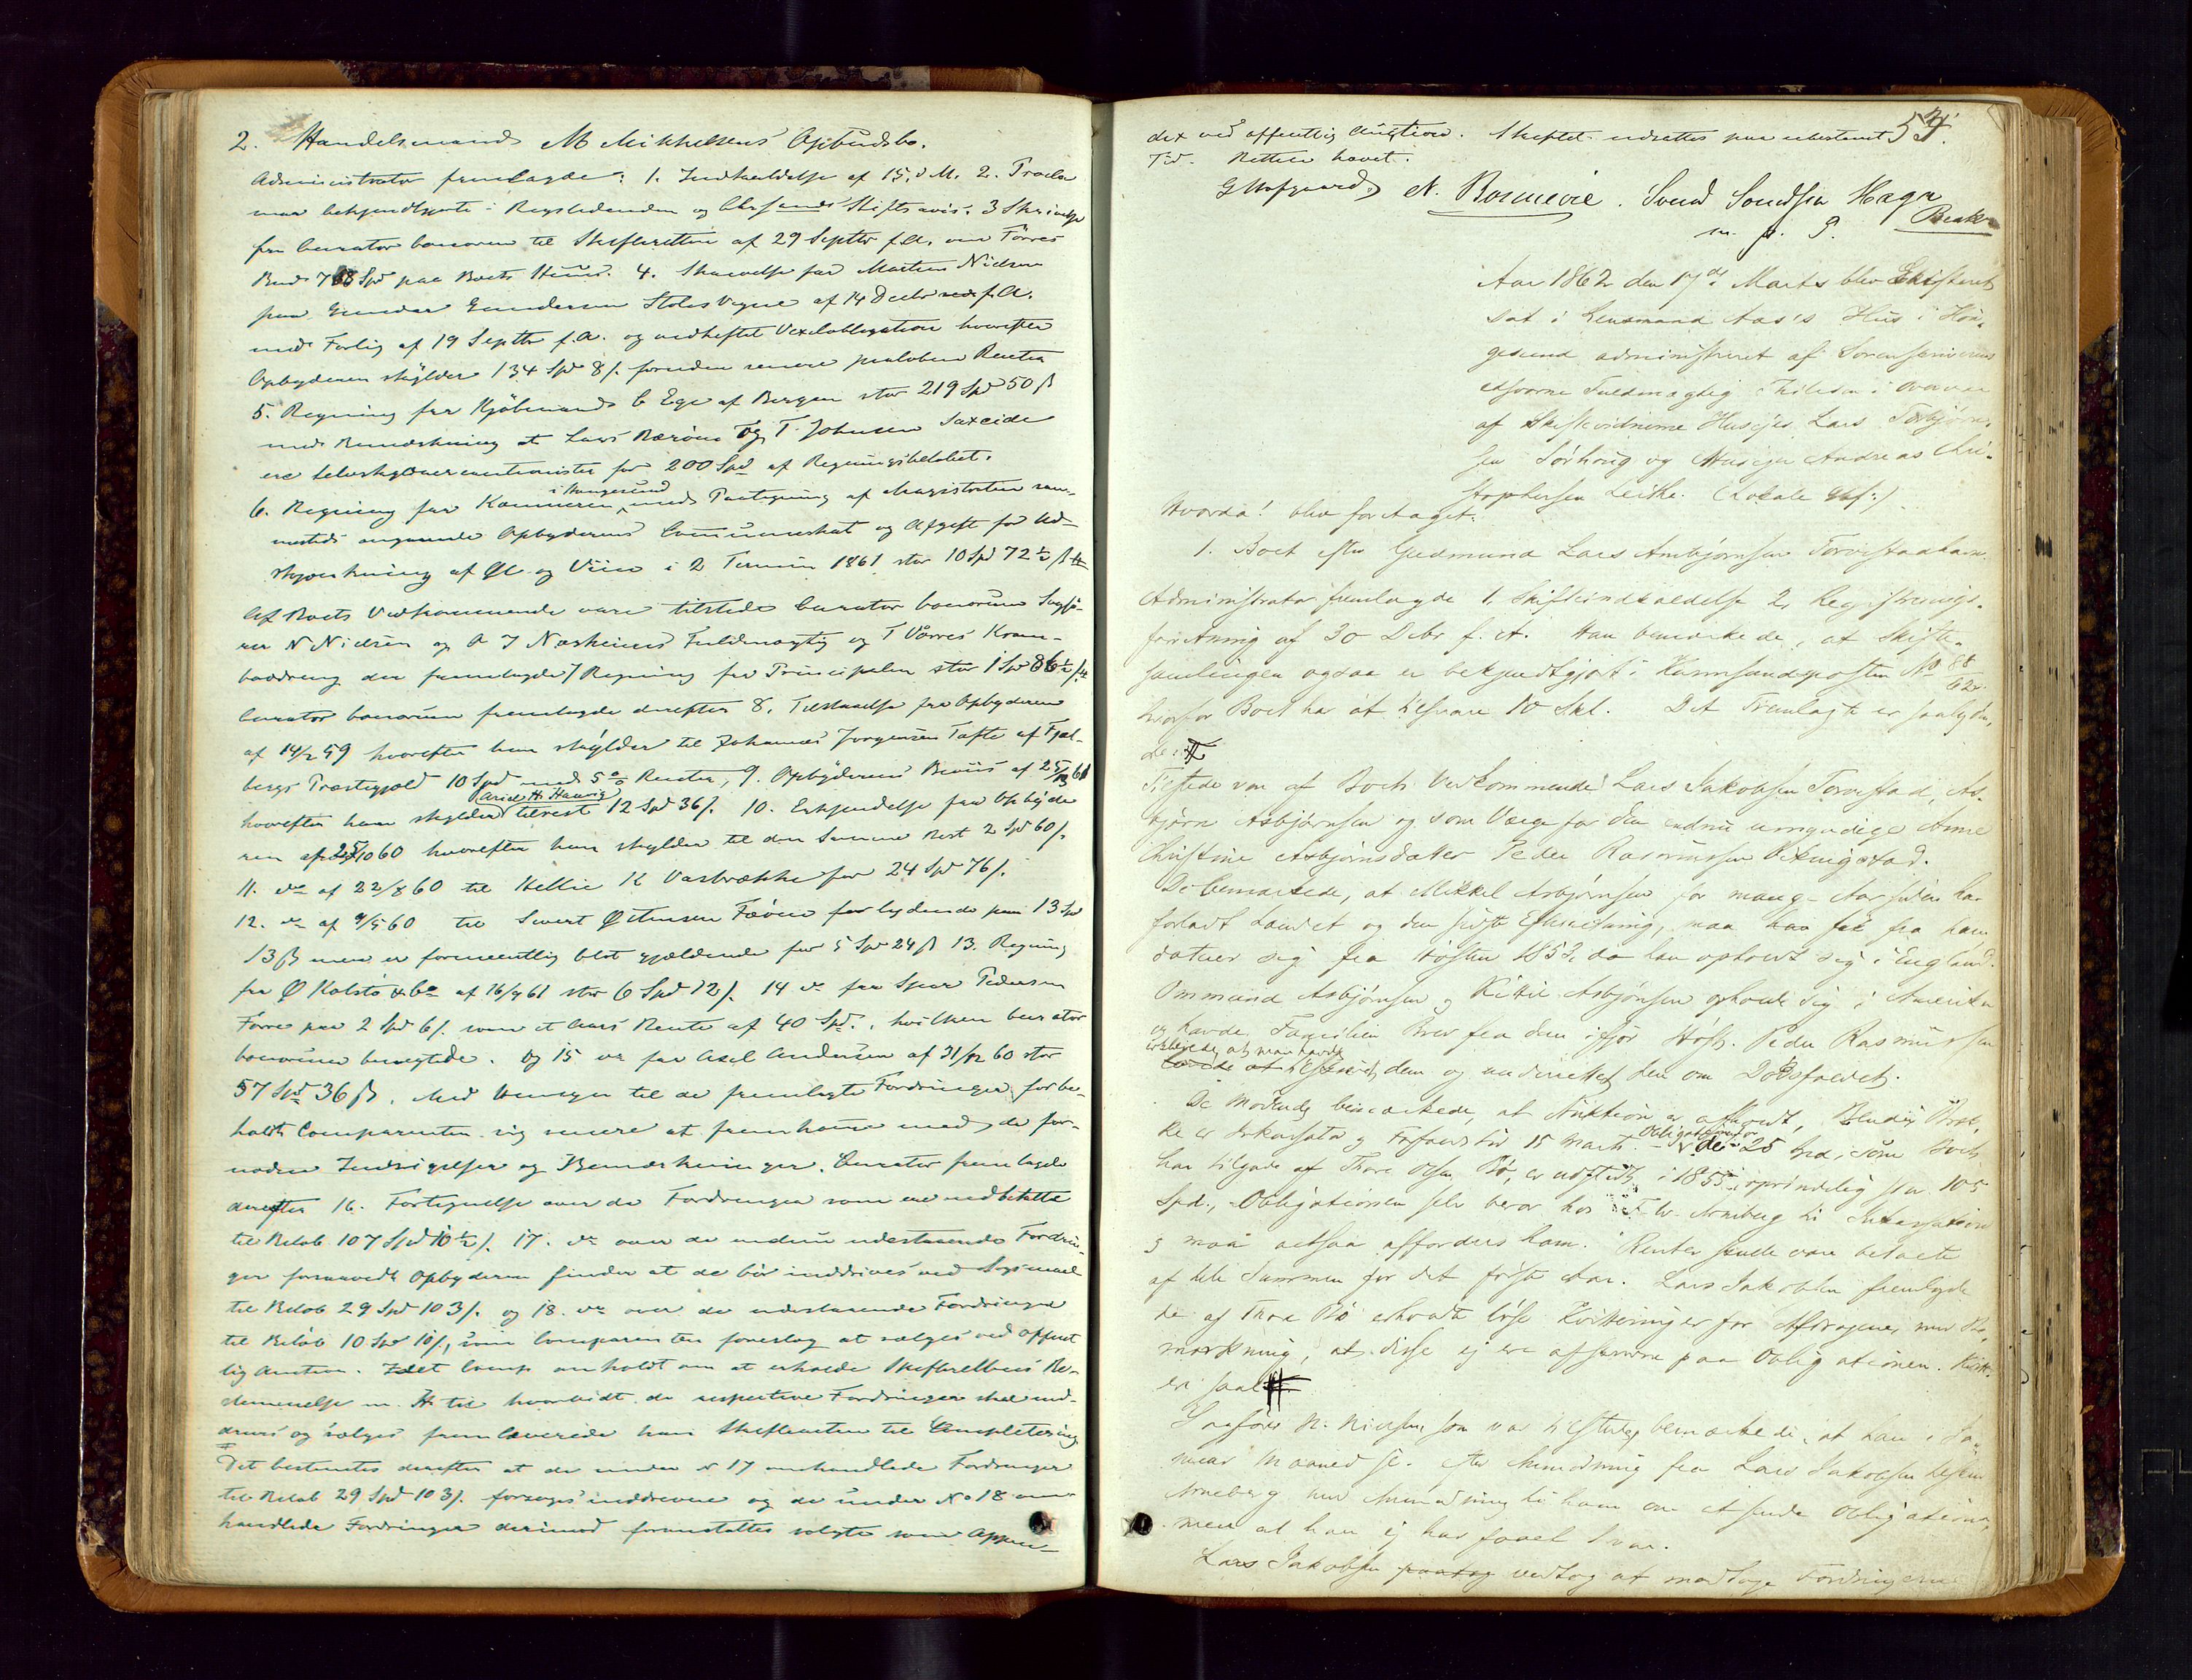 2. Handelsmand M Mikkelsens Opbudsbo.
Administrator fremlagde: 1. Indkaldelse af 15. d M. 2. Procla
ma bekjendtgjort i Rigstidenden og Chrsands Stiftsavis. 3 Skrivelse
fra curator bonorum til Skifteretten af 29 Septbr f.A. om Tørres
Bud 768 Spd paa Boets Huus. 4. Skrivelse fra Morten Nielsen
paa Gunder Gundersen Stoles Vegne af 14 Decbr f.A.
med Forlig af 19 Septbr f.A. og vedheftet Vexelobligation hvorefter
Opbyderen skylder 134 Spd 8 /. foruden senere paaløbne Renter
5. Regning fra Kjøbmand C Ege af Bergen stor 219 Spd 50 ß
med Bemærkning at Lars Rærøen og T. Johnsen Saxeide
ere selvskyldnercautionister for 200 Spd af Regningsbeløbet.
6. Regning fra Kæmneren i Haugesund med Paategning af Magistraten sam-
mesteds angaaende Opbyderens Communeskat og Afgift for Ud-
skjænkning af Øl og Viin i 2 Termin 1861 stor 10 Spd 72 ½ ß
Af Boets Vedkommende vare tilstede curator bonorum Sagfø-
rer N Nielsen og P J Næsheims Fuldmægtig og T Vårres Kram-
boddreng der fremlagde 7 Regning fra Principalen stor 1 Spd 86 ½ /.
Curator bonorum fremlagde derefter 8. Tilstaaelse fra Opbyderen
af 14/2 59 hvorefter han skylder til Johannes Jørgensen Tofte af Fjel-
bergs Præstegjeld 10 Spd med 5 % Renter, 9. Opbyderens Beviis af 25/3 61
hvorefter han skylder Ariel H. Haavig tilrest 12 Spd 36 /. 10. Erkjendelse fra Opbyde
ren af 25/10 60 hvorefter han skylder til den Samme Rest 2 Spd 60 /.
11. do af 22/8 60 til Hellie K Vasbrække for 24 Spd 76 /.
12. do af 9/5 60 til Sivert Østensen Fæøen lydende paa 13 Spd
13 ß men er formeentlig blot gjældende for 5 Spd 24 ß 13. Regning
fra Ø Kolstø & Co af 16/9 61 stor 6 Spd 12 /. 14 do fra Sjur Pedersen
Førre paa 2 Spd 6 /. som et Aars Rente af 40 Spd., hvilken curator
bonorum benegtede. og 15 do fra Axel Andersen af 31/12 60 stor
57 Spd 36 ß. Med Hensyn til de fremlagte Fordringer forbe-
holdt Comparenten sig senere at fremkomme med de for-
nødne Indsigelser og Bemærkninger. Curator fremlagde
derefter 16. Fortegnelse over de Fordringer som ere indbetalte
til Beløb 107 Spd 10 ½ /. 17. do over de endnu udestaaende Fordrin-
ger forsaavidt Opbyderen finder at de bør inddrives ved Søgsmaal
til Beløb 29 Spd 103 /. og 18. do over de udestaaende Fordringer
til Beløb 10 Spd 10 /, som Comparenten foreslog at sælges ved offent
lig Auction. Idet Comp anholdt om at erholde Skifterettens Be-
stemmelse m. H. til hvorvidt de respective Fordringer skal ind-
drives og sælges fremleverede han Skifteacten til Completering
Det bestemtes derefter at de under N 17 omhandlede Fordringer
til Beløb 29 Spd 103 /. forsøges inddrevne og de under No 18 om-
handlede Fordringer derimod foranstaltes solgte som
53.
det ved offentlig Auction. Skiftet udsattes paa ubestemt
Tid. Retten hævet.
G Hofgaard N. Svend Svendsen Haga
m. p. P.
Aar 1862 den 17de Marts blev Skifteret
sat i Lensmand Aas's Huus i Hau-
gesund administreret af Sorenskriverens
edsvorne Fuldmægtig i Overvær
af Skiftevidnerne Huseier Lars Torbjørn-
sen Sørhoug og Huseier Andreas Chri-
stophersen Leiske. (Lokale
Hvorda! blev foretaget:
1. Boet efter Gudmund Lars Asbjørnsen Torvestadhavn.
Administrator fremlagde 1. Skifteindkaldelse 2. Registrerings-
forretning af 30 Decbr f. A. Han bemærkede, at Skifte-
samlingen ogsaa er bekjendtgjort i Karmsundsposten No 88
hvorfor Boet har at tilsvare 10 Skl. Det Fremlagte er saalyden
de:
Tilstede var af Boets Vedkommende Lars Jakobsen Torvestad, As-
bjørn Asbjørnsen og som Værge for den endnu umyndige Anne
Christine Asbjørnsdatter Peder Rasmussen Vikingstad.
De bemærkede, at Mikkel Asbjørnsen for mange Aar siden har
forladt Landet og den sidste Efterretning, man har fra ham
daterer sig fra Høsten 1853, da han opholdt sig i England.
Ommund Asbjørnsen og Kittil Asbjørnsen opholde sig i Amerika
og havde Familien Brev fra dem ifjor Høst. Peder Rasmussen
at man havde
tilskrevet dem og underrettet dem om Dødsfaldet.
De Mødende bemærkede, at Auktion er afholdt,
er Inkassator og Forfaldstid 15 Marts. Obligationen for de 25 Spd, som Boet
har tilgode af Thore Olsen Bø, er udstedt i 1855 oprindelig stor 105
Spd., Obligationen selv beror hos Arneberg til Inkassation
og maa altsaa affordres ham. Renter skulle være betalte
af hele Summen for det første Aar. Lars Jakobsen fremlagde
de af Thore Bø erholdte løse Kvitteringer for Afdragene, med Be-
mærkning, at disse ej ere afskrevne paa Obligationen. Kvitt.
er saal
Sagfører N. Nielsen som var tilstede, bemærkede, at han i Ja-
nuar Maaned sl. efter Anmodning fra Lars Jakobsen tilskrev
Arneberg med Anmodning til ham om at sende Obligationen,
men at han ej har faaet Svar.
Lars Jakobsen vedtog at modtage Fordringerne